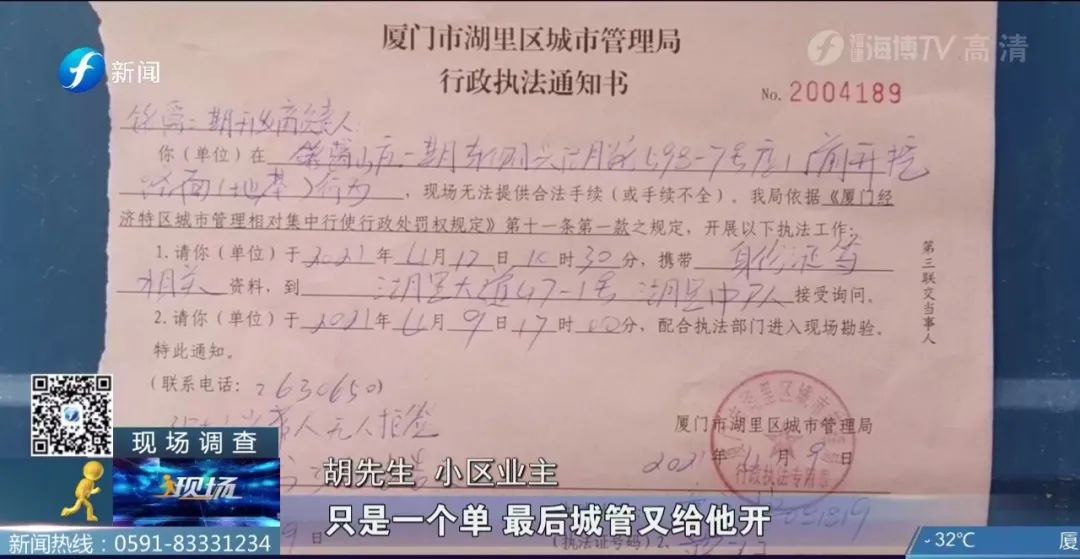 新闻
海博TV 高清
厦门市湖里区城市管理局
行政执法通知书
No. 2004189
你(单位)在
路面(地基)行为,现场无法提供合法手续(或手续不全)。我局依据《厦门经
济特区城市管理相对集中行使行政处罚权规定》第十一条第一款之规定,开展以下执法工作:
1.请你(单位)于2021年11月12日10时30分,携带身份证等
相关资料,到湖里大道47-1号湖里中队接受询问。
2.请你(单位)于2021年11月9日17时00分,配合执法部门进入现场勘验。
特此通知。
(联系电话:2630650)
第三联交当事人
厦门市湖里区城市管理局
2021年11月9日
行政执法专用章
(执法证号码)2、
现场调查
现场
胡先生 小区业主
只是一个单 最后城管又给他开
新闻热线:0591-83331234
- 32℃
厦